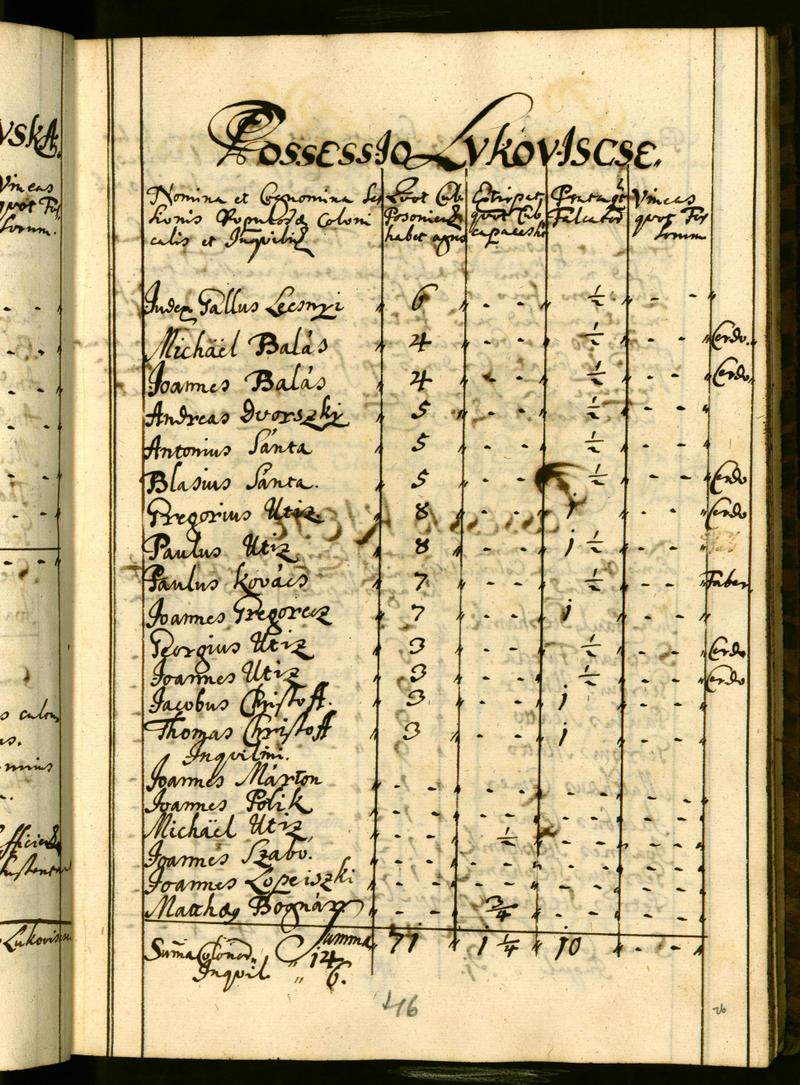 VSKA.
Vineas
quot Fos
sorum.
Possessio Lvkoviscse.
Nomina et Cognomina Ses
sionis Populosae Coloni
calis et Inquilin
Quot Cub
Posonien
habet agros
Extirpat
quot Cub
capaces
Prata
Falcator
Vineas
quot Fos
sorum
Judex Gallus Lecsnyi " 6 " - - " ½ " - - "
Michäel Balás " 4 " - - " ½ " - - " Cerdo.
Joannes Balás " 4 " - - " ½ " - - " Cerdo
Andreas Dvorszky " 5 " - - " ½ " - - "
Antonius Sánta " 5 " - - " ½ " - - "
Blasius Sánta. " 5 " - - " ½ " - - " Cerdo
Gregorius Utiz " 8 " - - " 1 " - - " Cerdo
Paulus Utiz " 8 " - - " 1 ½ " - - "
Paulus Kovács " 7 " - - " ½ " - - " Faber
Joannes Gregorecz " 7 " - - " 1 " - - "
Georgius Utiz " 3 " - - " ½ " - - " Cerdo
Joannes Utiz " 3 " - - " ½ " - - " Cerdo
Jacobus Christoff. " 3 " - - " 1 " - - "
Thomas Christoff " 3 " - - " 1 " - - "
Inquilini.
Joannes Márton " - - " - - " - - " - - "
Joannes Polik " - - " - - " - - " - - "
Michäel Utiz " - - " ½ " - - " - - "
Joannes Szabo. " - - " - - " - - " - - "
Joannes Lopeiszki " - - " - - " - - " - - "
Matthaeus Bognár " - - " ¾ " - - " - - "
Summa 71 " 1 ¼ " 10 " - - "
Suma Colonor. " 14
Inquil " 6.
46